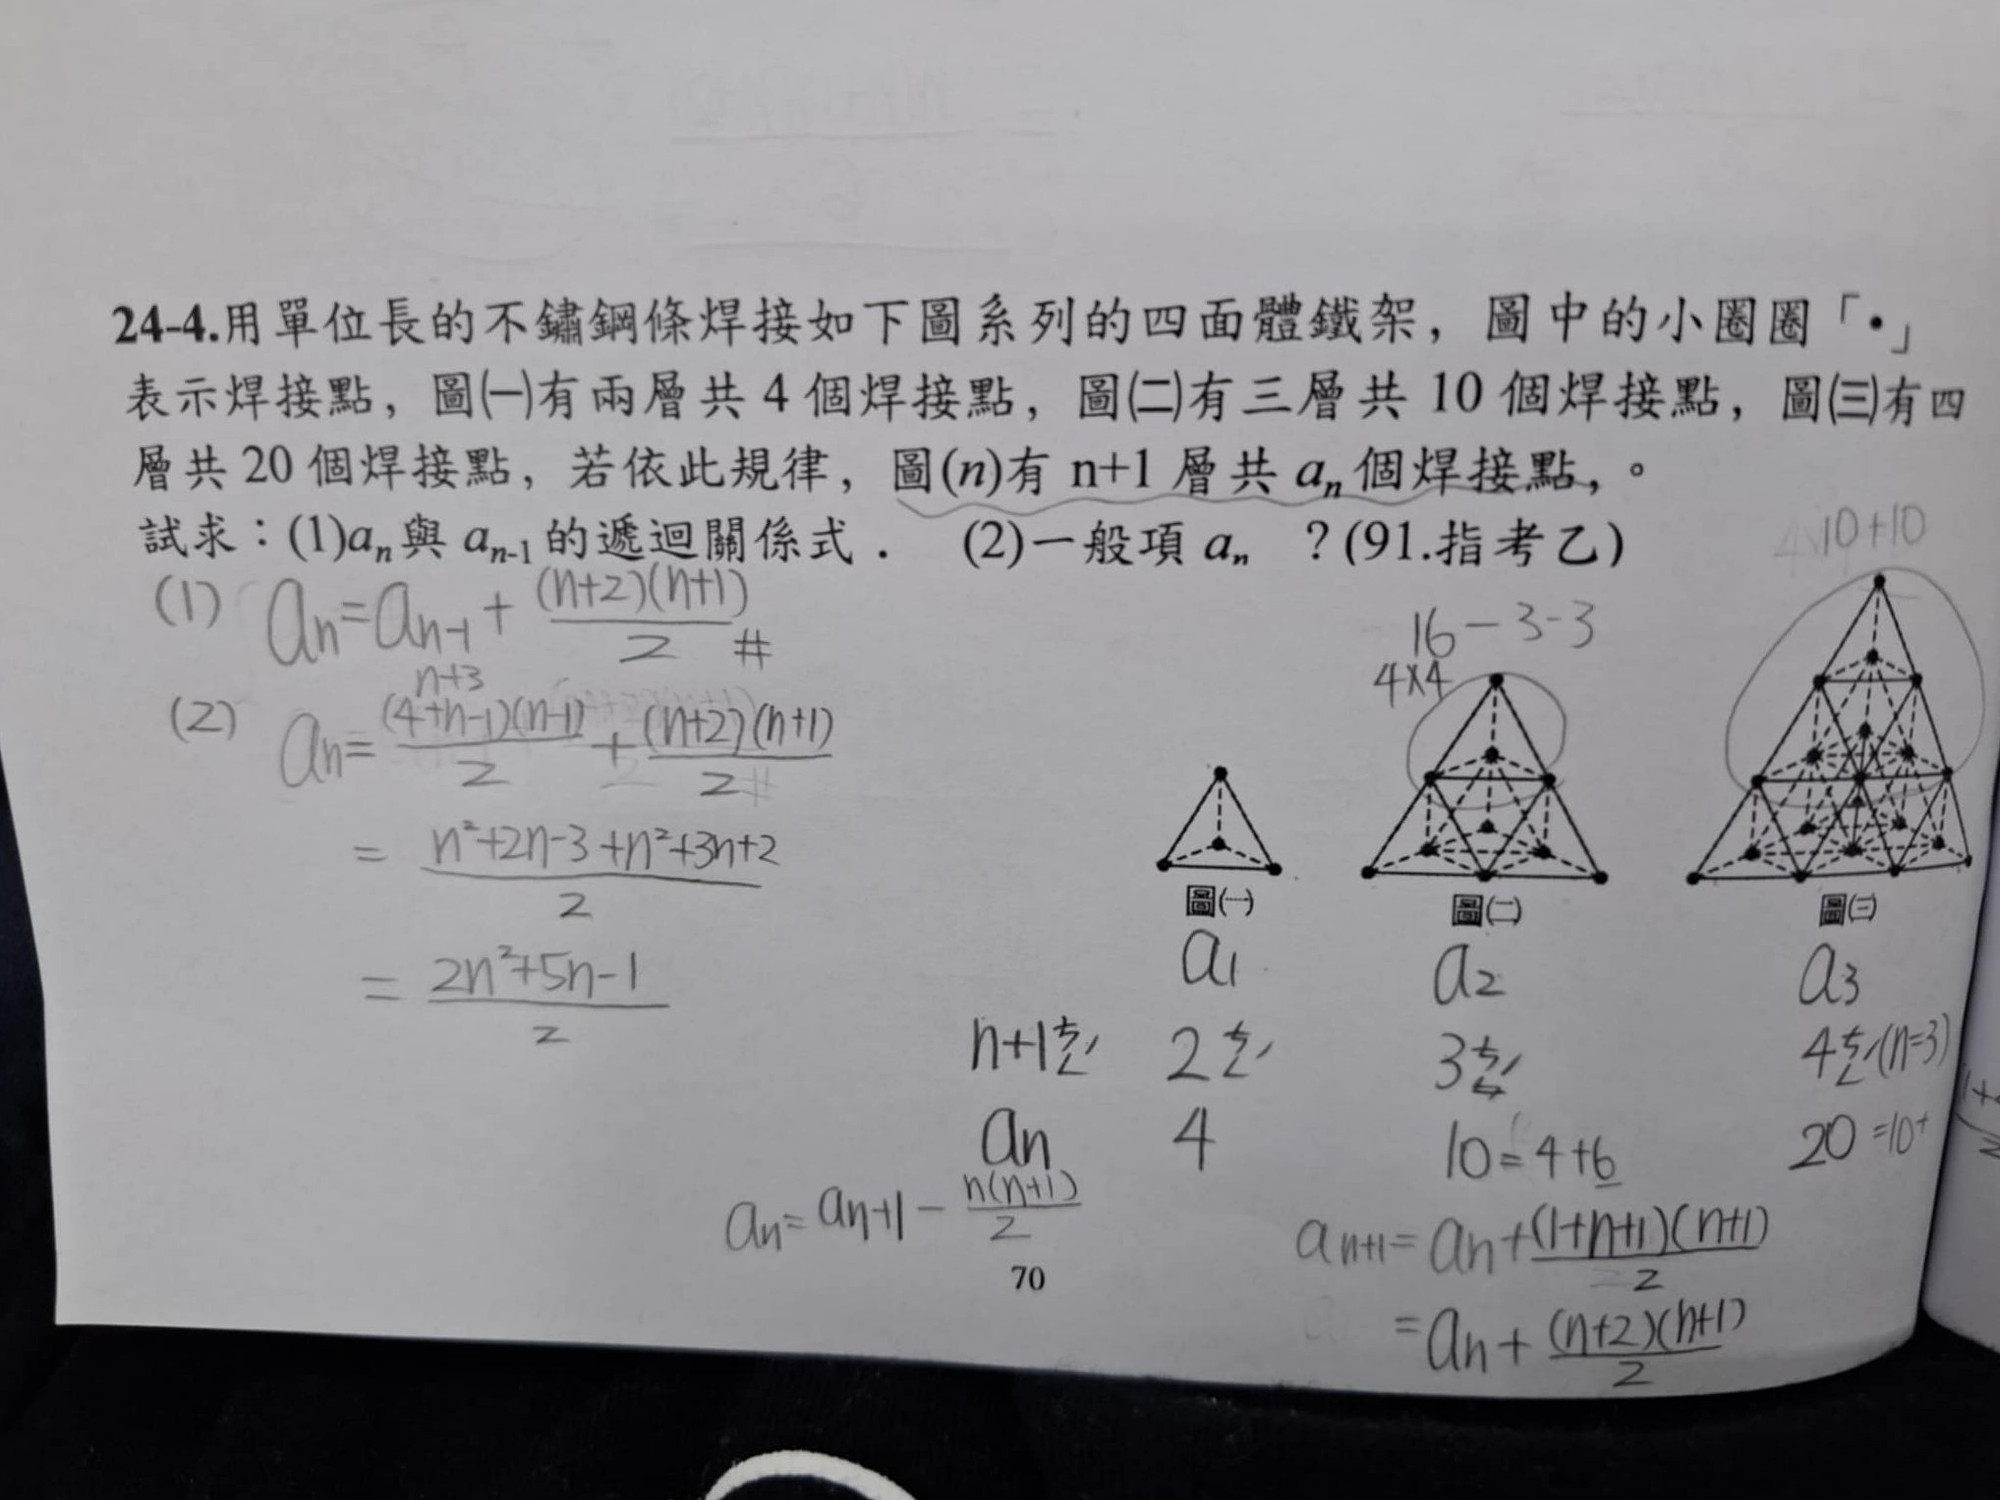 24-4.用單位長的不鏽鋼條焊接如下圖系列的四面體鐵架，圖中的小圈圈「•」
表示焊接點，圖㈠有兩層共 4 個焊接點，圖㈡有三層共 10 個焊接點，圖㈢有四
層共 20 個焊接點，若依此規律，圖(n)有 n+1 層共 aₙ個焊接點，。
試求：(1)aₙ與 aₙ₋₁的遞迴關係式． (2)一般項 aₙ ？(91.指考乙)
(1) aₙ=aₙ₋₁+(n+2)(n+1)/2 #
n+3
(2) aₙ=(4+n-1)(n-1)/2+(n+2)(n+1)/2
=(n²+2n-3+n²+3n+2)/2
=(2n²+5n-1)/2
10+10
16-3-3
4×4
圖㈠ 圖㈡ 圖㈢
a₁ a₂ a₃
n+1 2 3 4 (n=3)
aₙ 4 10=4+6 20=10+
aₙ=aₙ₊₁-n(n+1)/2
aₙ₊₁=aₙ+(1+n+1)(n+1)/2
=aₙ+(n+2)(n+1)/2
70